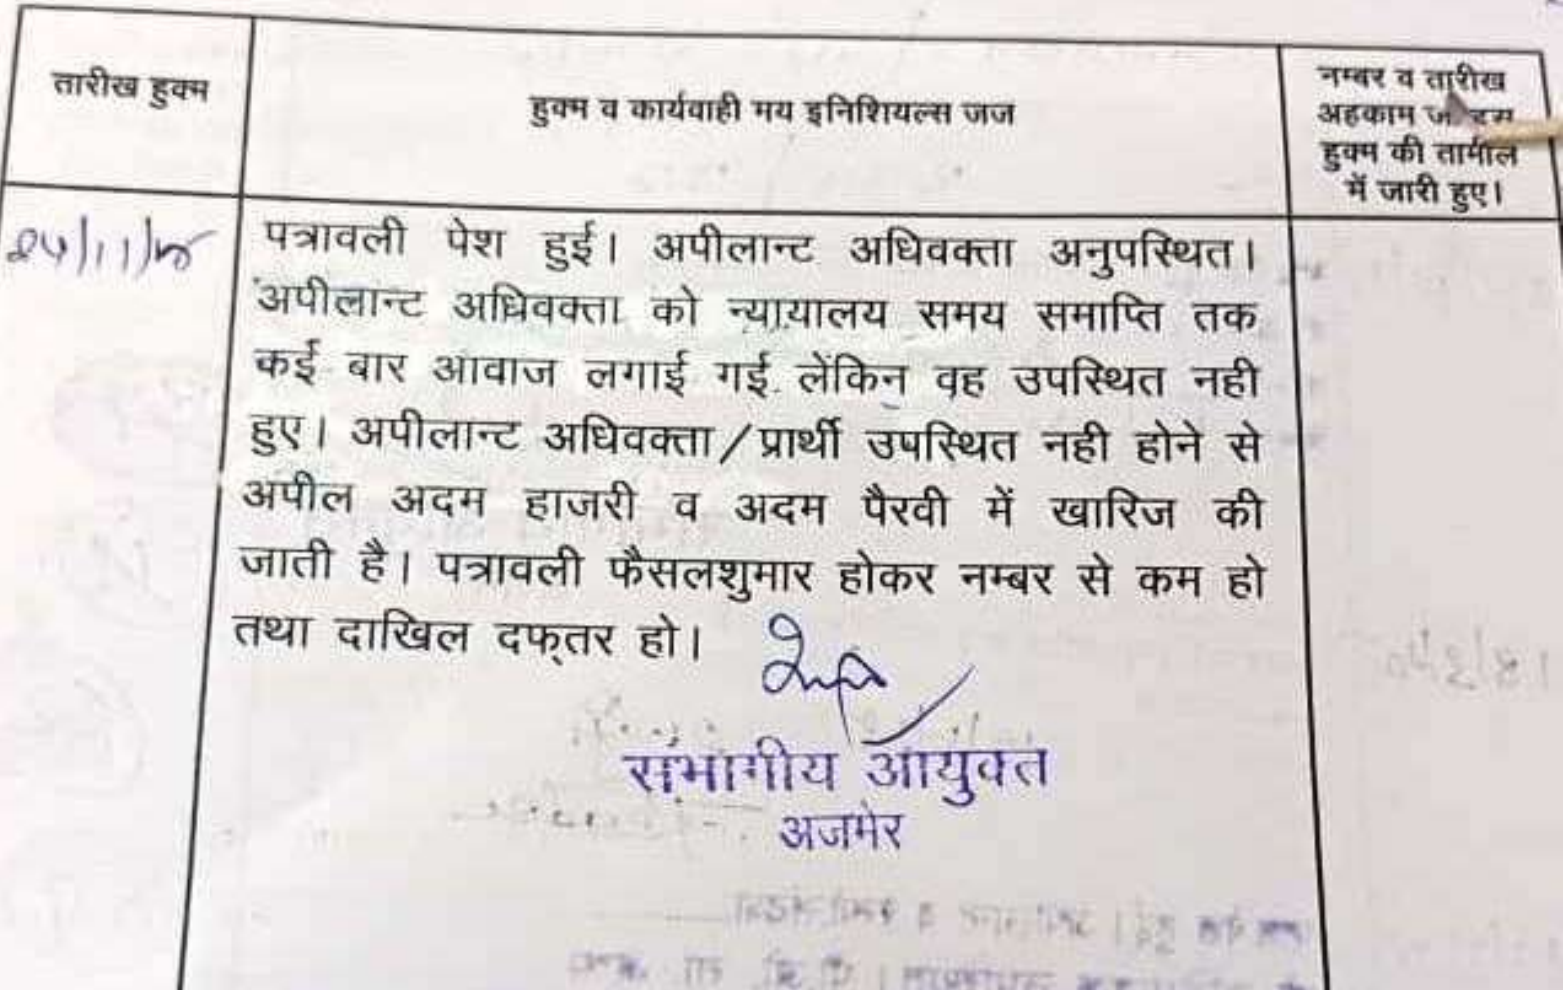 तारीख हुक्म
हुक्म व कार्यवाही मय इनिशियल्स जज
नम्बर व तारीख
अहकाम
हुक्म की तामील
में जारी हुए।
पत्रावली पेश हुई। अपीलान्ट अधिवक्ता अनुपस्थित।
अपीलान्ट अधिवक्ता को न्यायालय समय समाप्ति तक
कई बार आवाज लगाई गई लेंकिन वह उपस्थित नही
हुए। अपीलान्ट अधिवक्ता/प्रार्थी उपस्थित नही होने से
अपील अदम हाजरी व अदम पैरवी में खारिज की
जाती है। पत्रावली फैसलशुमार होकर नम्बर से कम हो
तथा दाखिल दफ्तर हो।
संभागीय आयुक्त
अजमेर